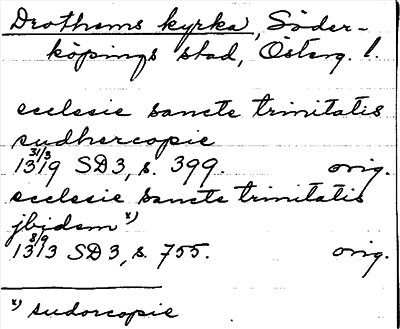 Drothems kyrka, Söder-
köpings stad, Österg. l.
ecclesie sancte trinitatis
sudhercopie
13 31/3 19 SD3, s. 399. orig.
ecclesie sancte trinitatis
jbidem x)
13 8/9 13 SD3, s. 755. orig.
x) sudorcopie